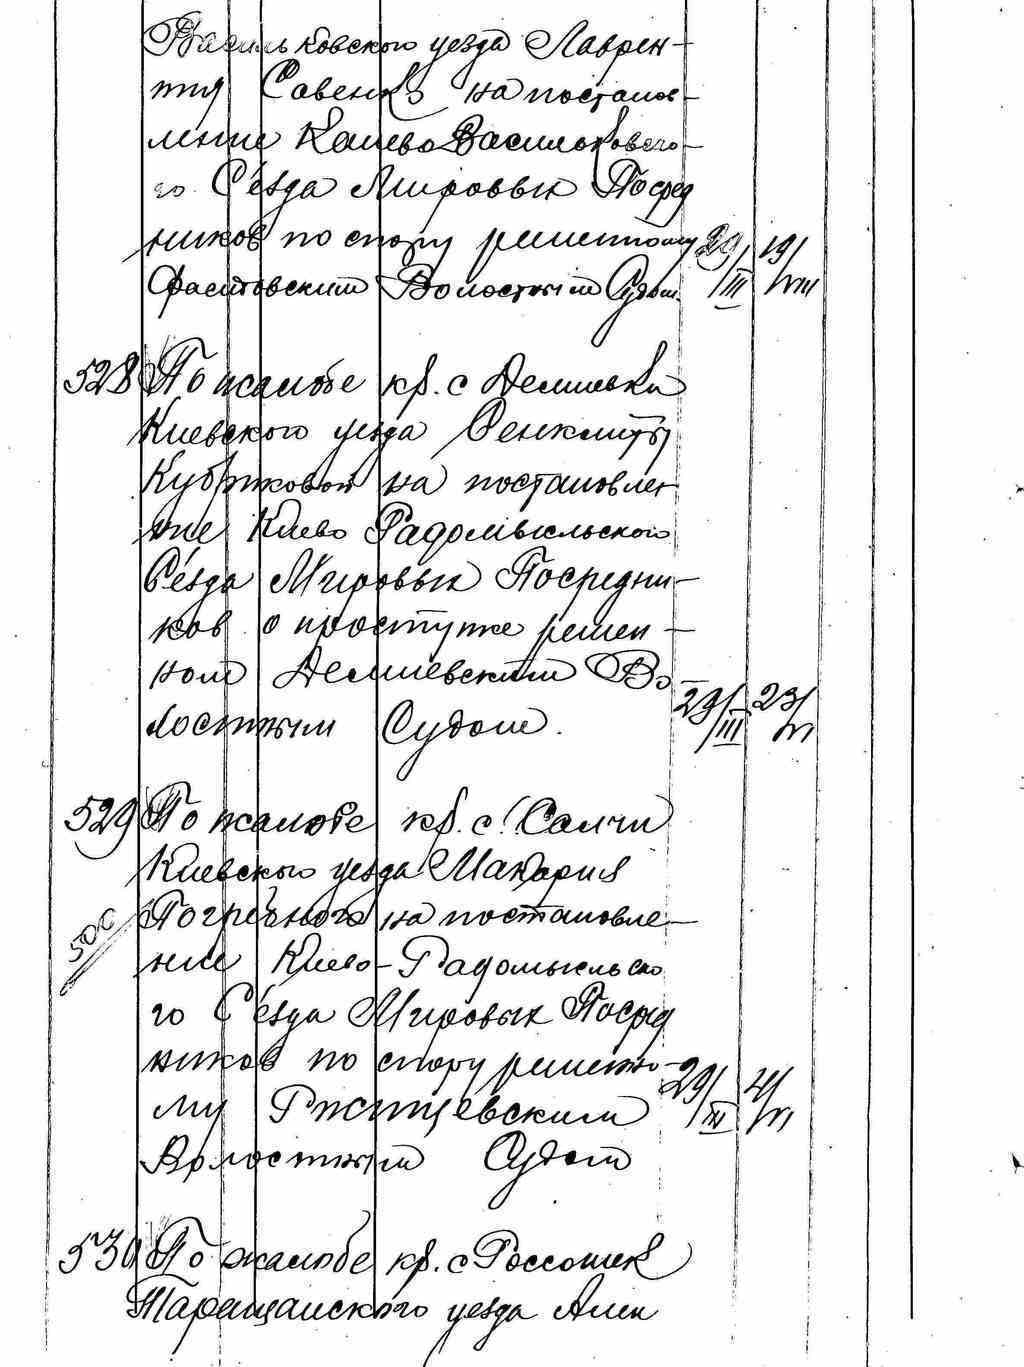 Васильковского уезда Лаврен-
тия Савенко на постанов-
ление Киево Васильковско-
го Сʼезда Мировых Посред
ников по спору решенному 29/III 19/VIII
Фастовским Волостным Судом
528 По жалобе кр. с Демиевки
Киевского уезда
на постановле
ние Киево Радомысльского
Сʼезда Мировых Посредни-
ков о проступке решен-
ном Демиевским Во-
лостным Судом. 29/III 23/VI
529 По жалобе кр. с. Салчи
Киевского уезда Макария
Погребного на постановле-
500
ние Киево-Радомысльско
го Сʼезда Мировых Посред
ников по спору решенно-
му Ржищевским 29/III 4/VI
Волостным Судом
530 По жалобе кр. с Россошек
Таращанского уезда Алек